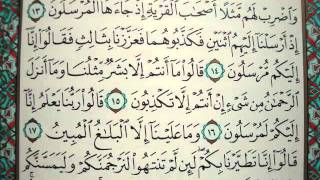 وَاضْرِبْ لَهُم مَّثَلًا أَصْحَٰبَ الْقَرْيَةِ إِذْ جَآءَهَا الْمُرْسَلُونَ ١٣
إِذْ أَرْسَلْنَآ إِلَيْهِمُ اثْنَيْنِ فَكَذَّبُوهُمَا فَعَزَّزْنَا بِثَالِثٍ فَقَالُوٓا۟ إِنَّآ
إِلَيْكُم مُّرْسَلُونَ ١٤ قَالُوا۟ مَآ أَنتُمْ إِلَّا بَشَرٌ مِّثْلُنَا وَمَآ أَنزَلَ
الرَّحْمَٰنُ مِن شَىْءٍ إِنْ أَنتُمْ إِلَّا تَكْذِبُونَ ١٥ قَالُوا۟ رَبُّنَا يَعْلَمُ إِنَّآ
إِلَيْكُمْ لَمُرْسَلُونَ ١٦ وَمَا عَلَيْنَآ إِلَّا الْبَلَٰغُ الْمُبِينُ ١٧
قَالُوٓا۟ إِنَّا تَطَيَّرْنَا بِكُمْ لَئِن لَّمْ تَنتَهُوا۟ لَنَرْجُمَنَّكُمْ وَلَيَمَسَّنَّكُم